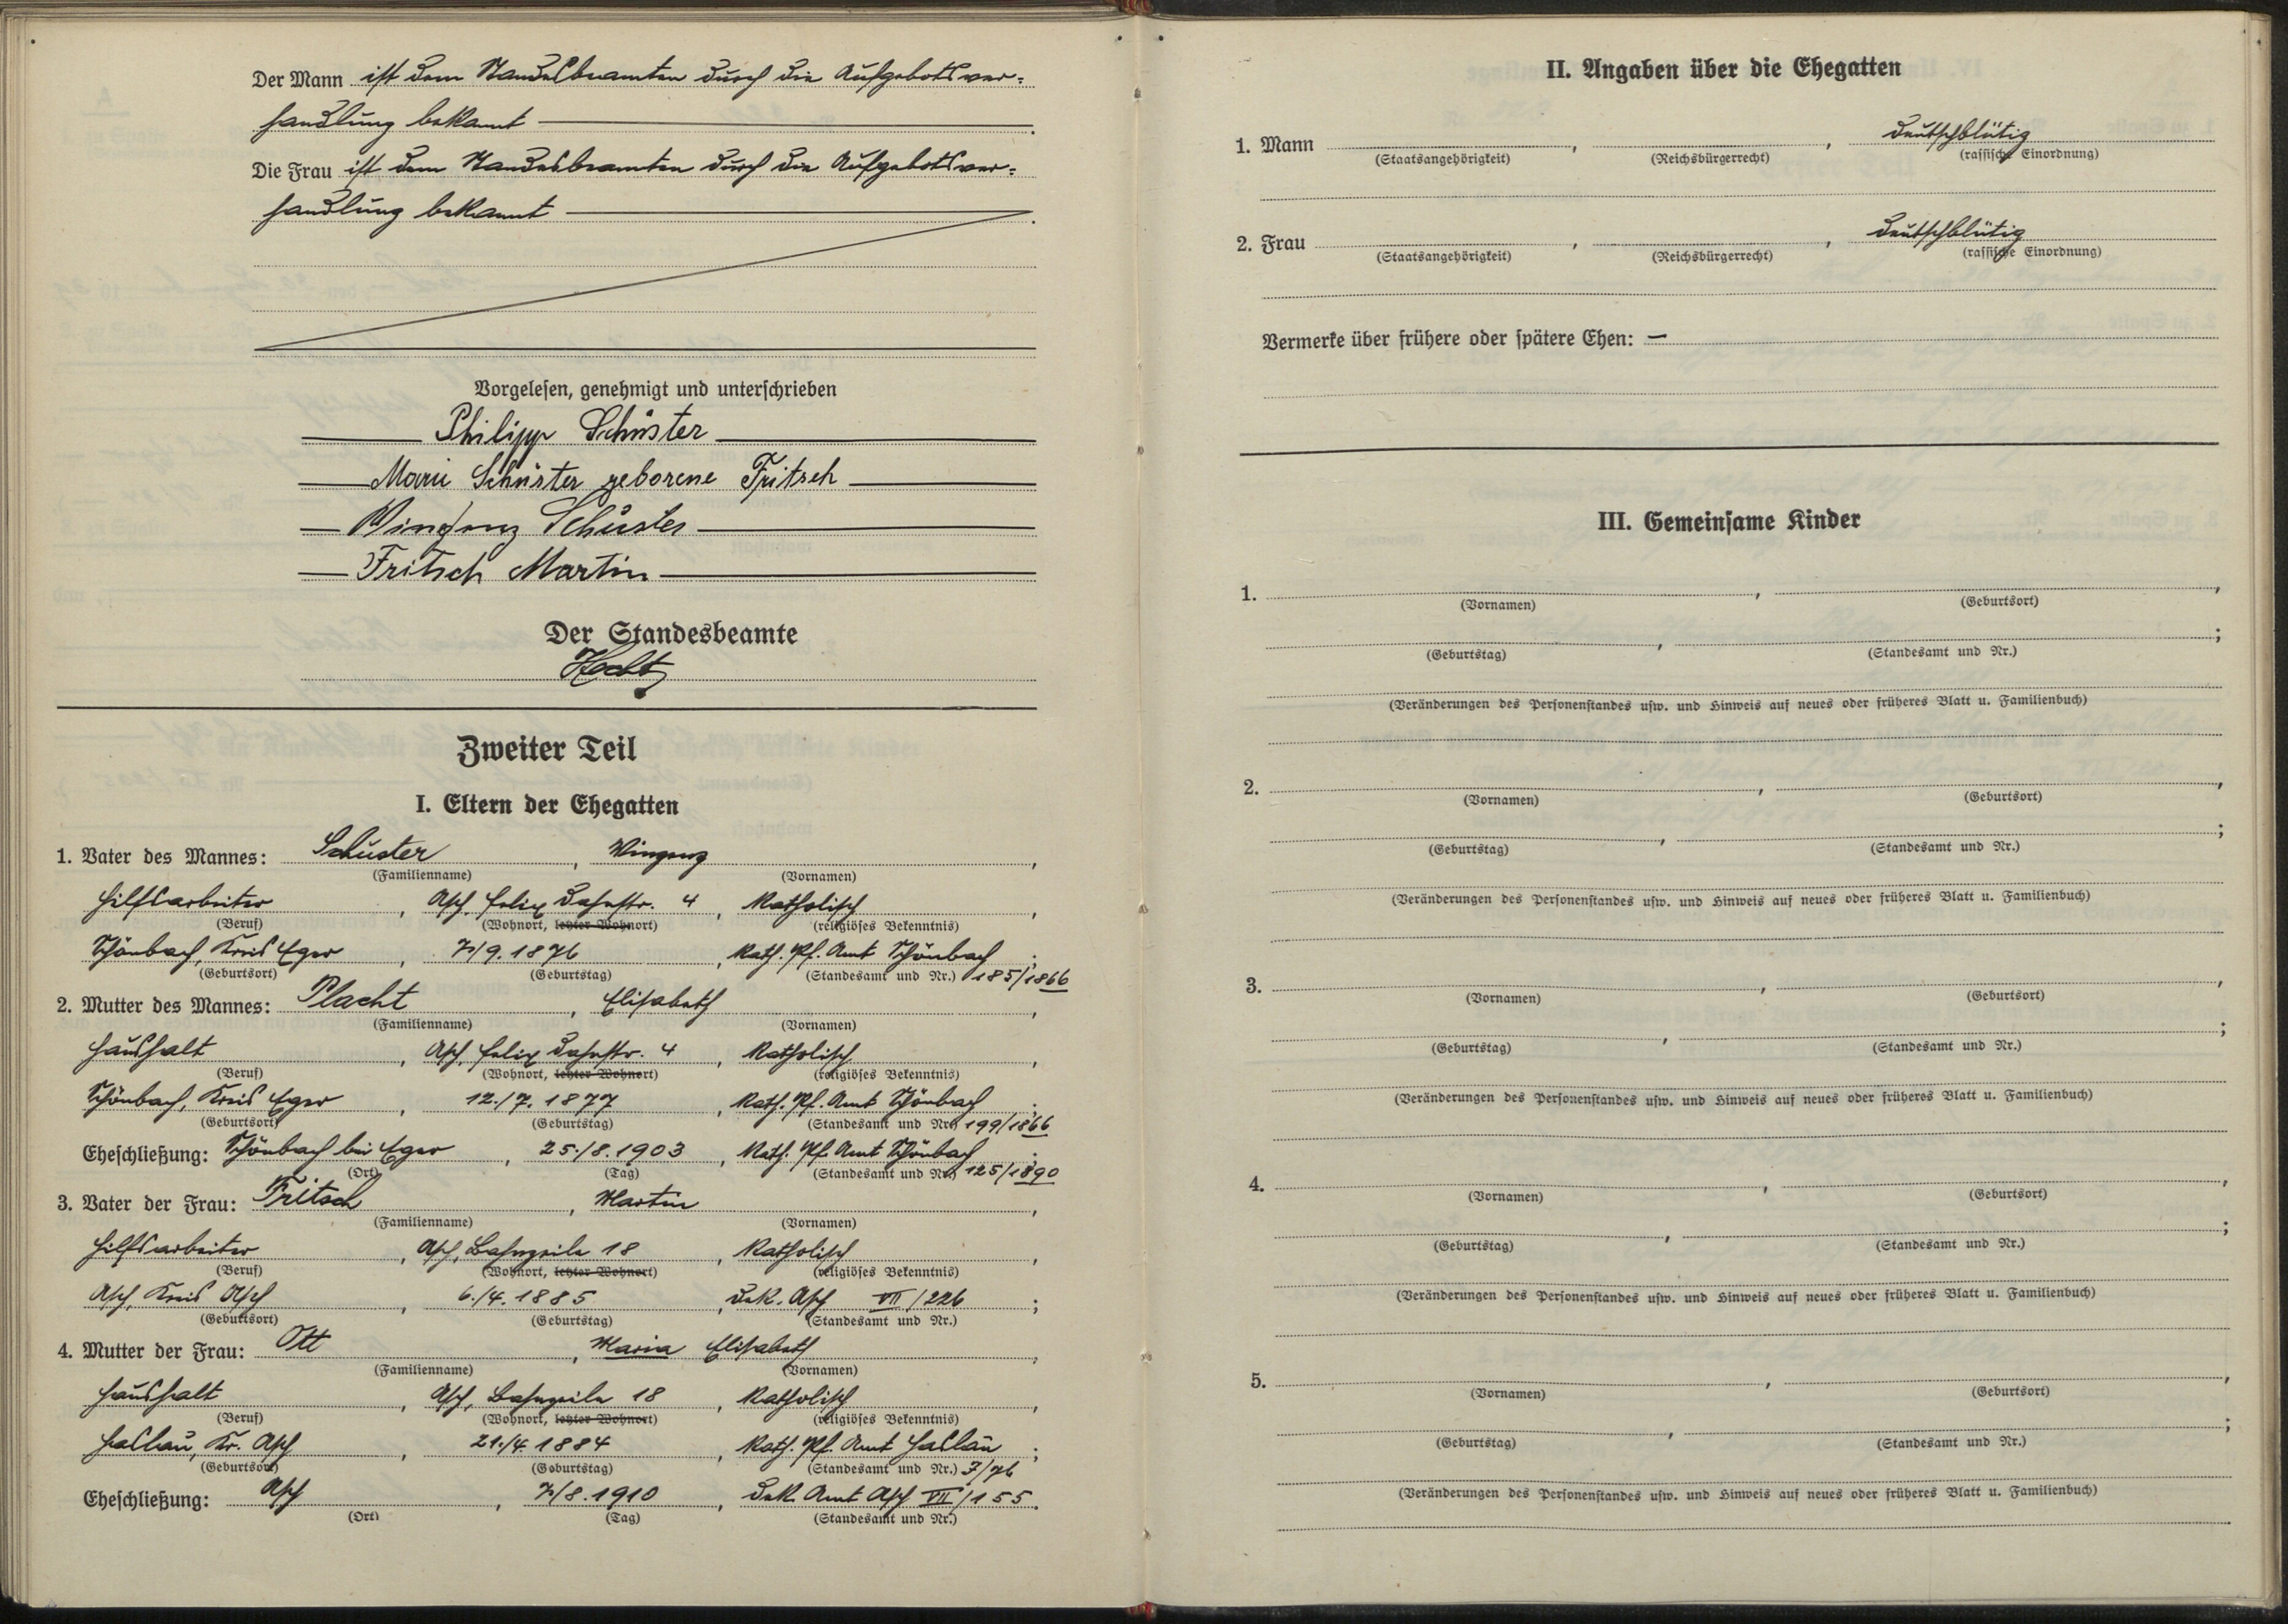 Der Mann ist dem Standesbeamten durch die Aufgebotsver-
handlung bekannt
Die Frau ist dem Standesbeamten durch die Aufgebotsver-
handlung bekannt
Vorgelesen, genehmigt und unterschrieben
Philipp Schuster
Marie Schuster geborene Fritsch
Winzenz Schuster
Fritsch Martin
Der Standesbeamte
Zweiter Teil
I. Eltern der Ehegatten
1. Vater des Mannes: Schuster, Winzenz,
(Familienname) (Vornamen)
Hilfsarbeiter, Asch, Felix Dahnstr. 4, katholisch,
(Beruf) (Wohnort, letzter Wohnort) (religiöses Bekenntnis)
Schönbach, Kreis Eger, 7./9. 1876, Kath. Pf. Amt Schönbach;
(Geburtsort) (Geburtstag) (Standesamt und Nr.) 185/1866
2. Mutter des Mannes: Placht, Elisabeth,
(Familienname) (Vornamen)
Haushalt, Asch, Felix Dahnstr. 4, katholisch,
(Beruf) (Wohnort, letzter Wohnort) (religiöses Bekenntnis)
Schönbach, Kreis Eger, 12./7. 1877, Kath. Pf. Amt Schönbach;
(Geburtsort) (Geburtstag) (Standesamt und Nr.) 199/1866
Eheschließung: Schönbach bei Eger, 25./8. 1903, Kath. Pf. Amt Schönbach;
(Ort) (Tag) (Standesamt und Nr.) 125/1890
3. Vater der Frau: Fritsch, Martin,
(Familienname) (Vornamen)
Hilfsarbeiter, Asch, Bahnzeile 18, katholisch,
(Beruf) (Wohnort, letzter Wohnort) (religiöses Bekenntnis)
Asch, Kreis Asch, 6./4. 1885, Dek. Asch VII/226;
(Geburtsort) (Geburtstag) (Standesamt und Nr.)
4. Mutter der Frau: Ott, Maria Elisabeth,
(Familienname) (Vornamen)
Haushalt, Asch, Bahnzeile 18, katholisch,
(Beruf) (Wohnort, letzter Wohnort) (religiöses Bekenntnis)
Haslau, Kr. Asch, 21./4. 1884, Kath. Pf. Amt Haslau;
(Geburtsort) (Geburtstag) (Standesamt und Nr.) 7/76
Eheschließung: Asch, 7./8. 1910, Dek. Amt Asch VII/155.
(Ort) (Tag) (Standesamt und Nr.)
II. Angaben über die Ehegatten
1. Mann , , deutschblütig
(Staatsangehörigkeit) (Reichsbürgerrecht) (rassische Einordnung)
2. Frau , , deutschblütig
(Staatsangehörigkeit) (Reichsbürgerrecht) (rassische Einordnung)
Vermerke über frühere oder spätere Ehen: —
III. Gemeinsame Kinder
1. , ,
(Vornamen) (Geburtsort)
, ;
(Geburtstag) (Standesamt und Nr.)
(Veränderungen des Personenstandes usw. und Hinweis auf neues oder früheres Blatt u. Familienbuch)
2. , ,
(Vornamen) (Geburtsort)
, ;
(Geburtstag) (Standesamt und Nr.)
(Veränderungen des Personenstandes usw. und Hinweis auf neues oder früheres Blatt u. Familienbuch)
3. , ,
(Vornamen) (Geburtsort)
, ;
(Geburtstag) (Standesamt und Nr.)
(Veränderungen des Personenstandes usw. und Hinweis auf neues oder früheres Blatt u. Familienbuch)
4. , ,
(Vornamen) (Geburtsort)
, ;
(Geburtstag) (Standesamt und Nr.)
(Veränderungen des Personenstandes usw. und Hinweis auf neues oder früheres Blatt u. Familienbuch)
5. , ,
(Vornamen) (Geburtsort)
, ;
(Geburtstag) (Standesamt und Nr.)
(Veränderungen des Personenstandes usw. und Hinweis auf neues oder früheres Blatt u. Familienbuch)